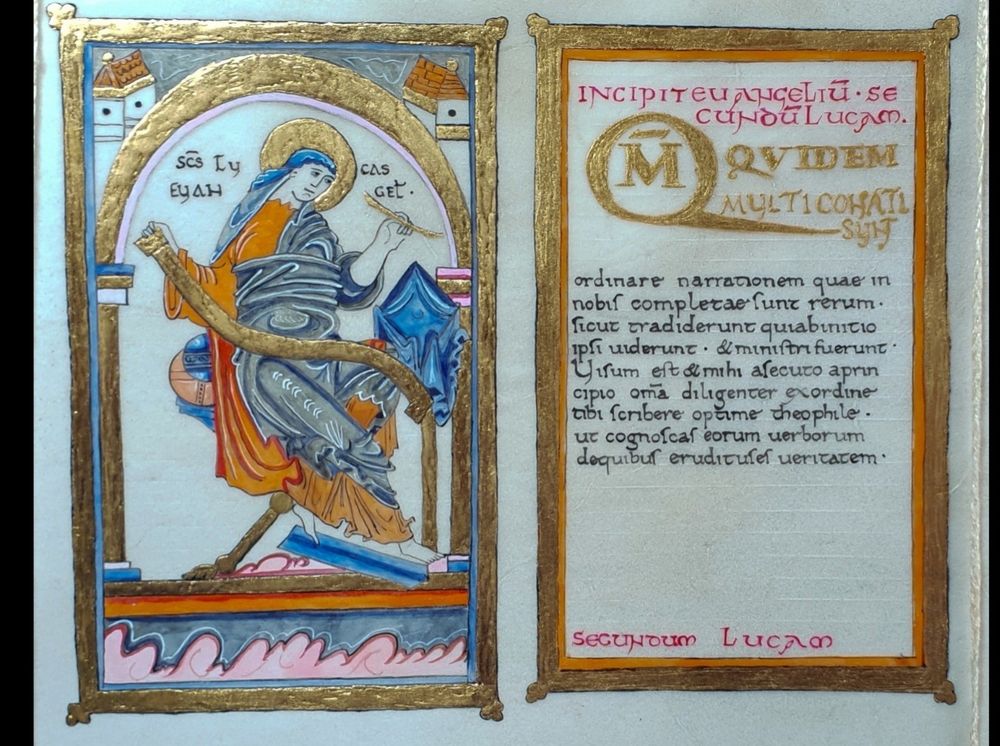 SC̄S LU
CAS
EUAN
GET·
INCIPIT EUANGELIŪ·SE
CUNDŪ LUCAM.
Q M̄ QVIDEM
MULTI CONATI
SUNT
ordinare narrationem quae in
nobis completae sunt rerum·
sicut tradiderunt quiabinitio
ipsi uiderunt· & ministri fuerunt·
Uisum est & mihi asecuto aprin
cipio om̄a diligenter exordine
tibi scribere optime theophile·
ut cognoscas eorum uerborum
dequibus erudituses ueritatem·
SECUNDUM LUCAM